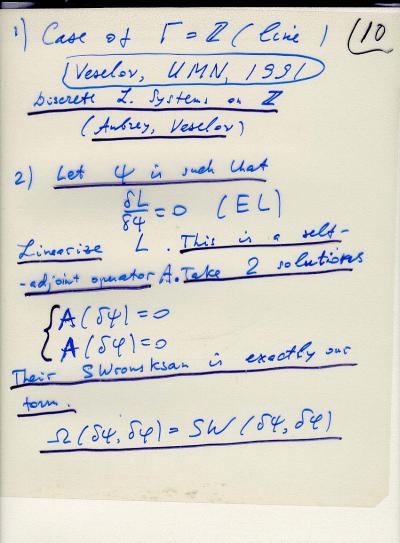 1) Case of Γ = ℤ (line) (10
(Veselov, UMN, 1991)
Discrete L. Systems on ℤ
(Aubrey, Veselov)
2) Let ψ is such that
δL/δψ = 0 (EL)
Linearize L. This is a self-
-adjoint operator A. Take 2 solutions
{ A(δψ) = 0
A(δφ) = 0
Their SWronskian is exactly our
form.
Ω(δψ, δφ) = SW(δψ, δφ)